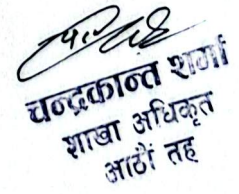 चन्द्रकान्त शर्मा
शाखा अधिकृत
आठौं तह